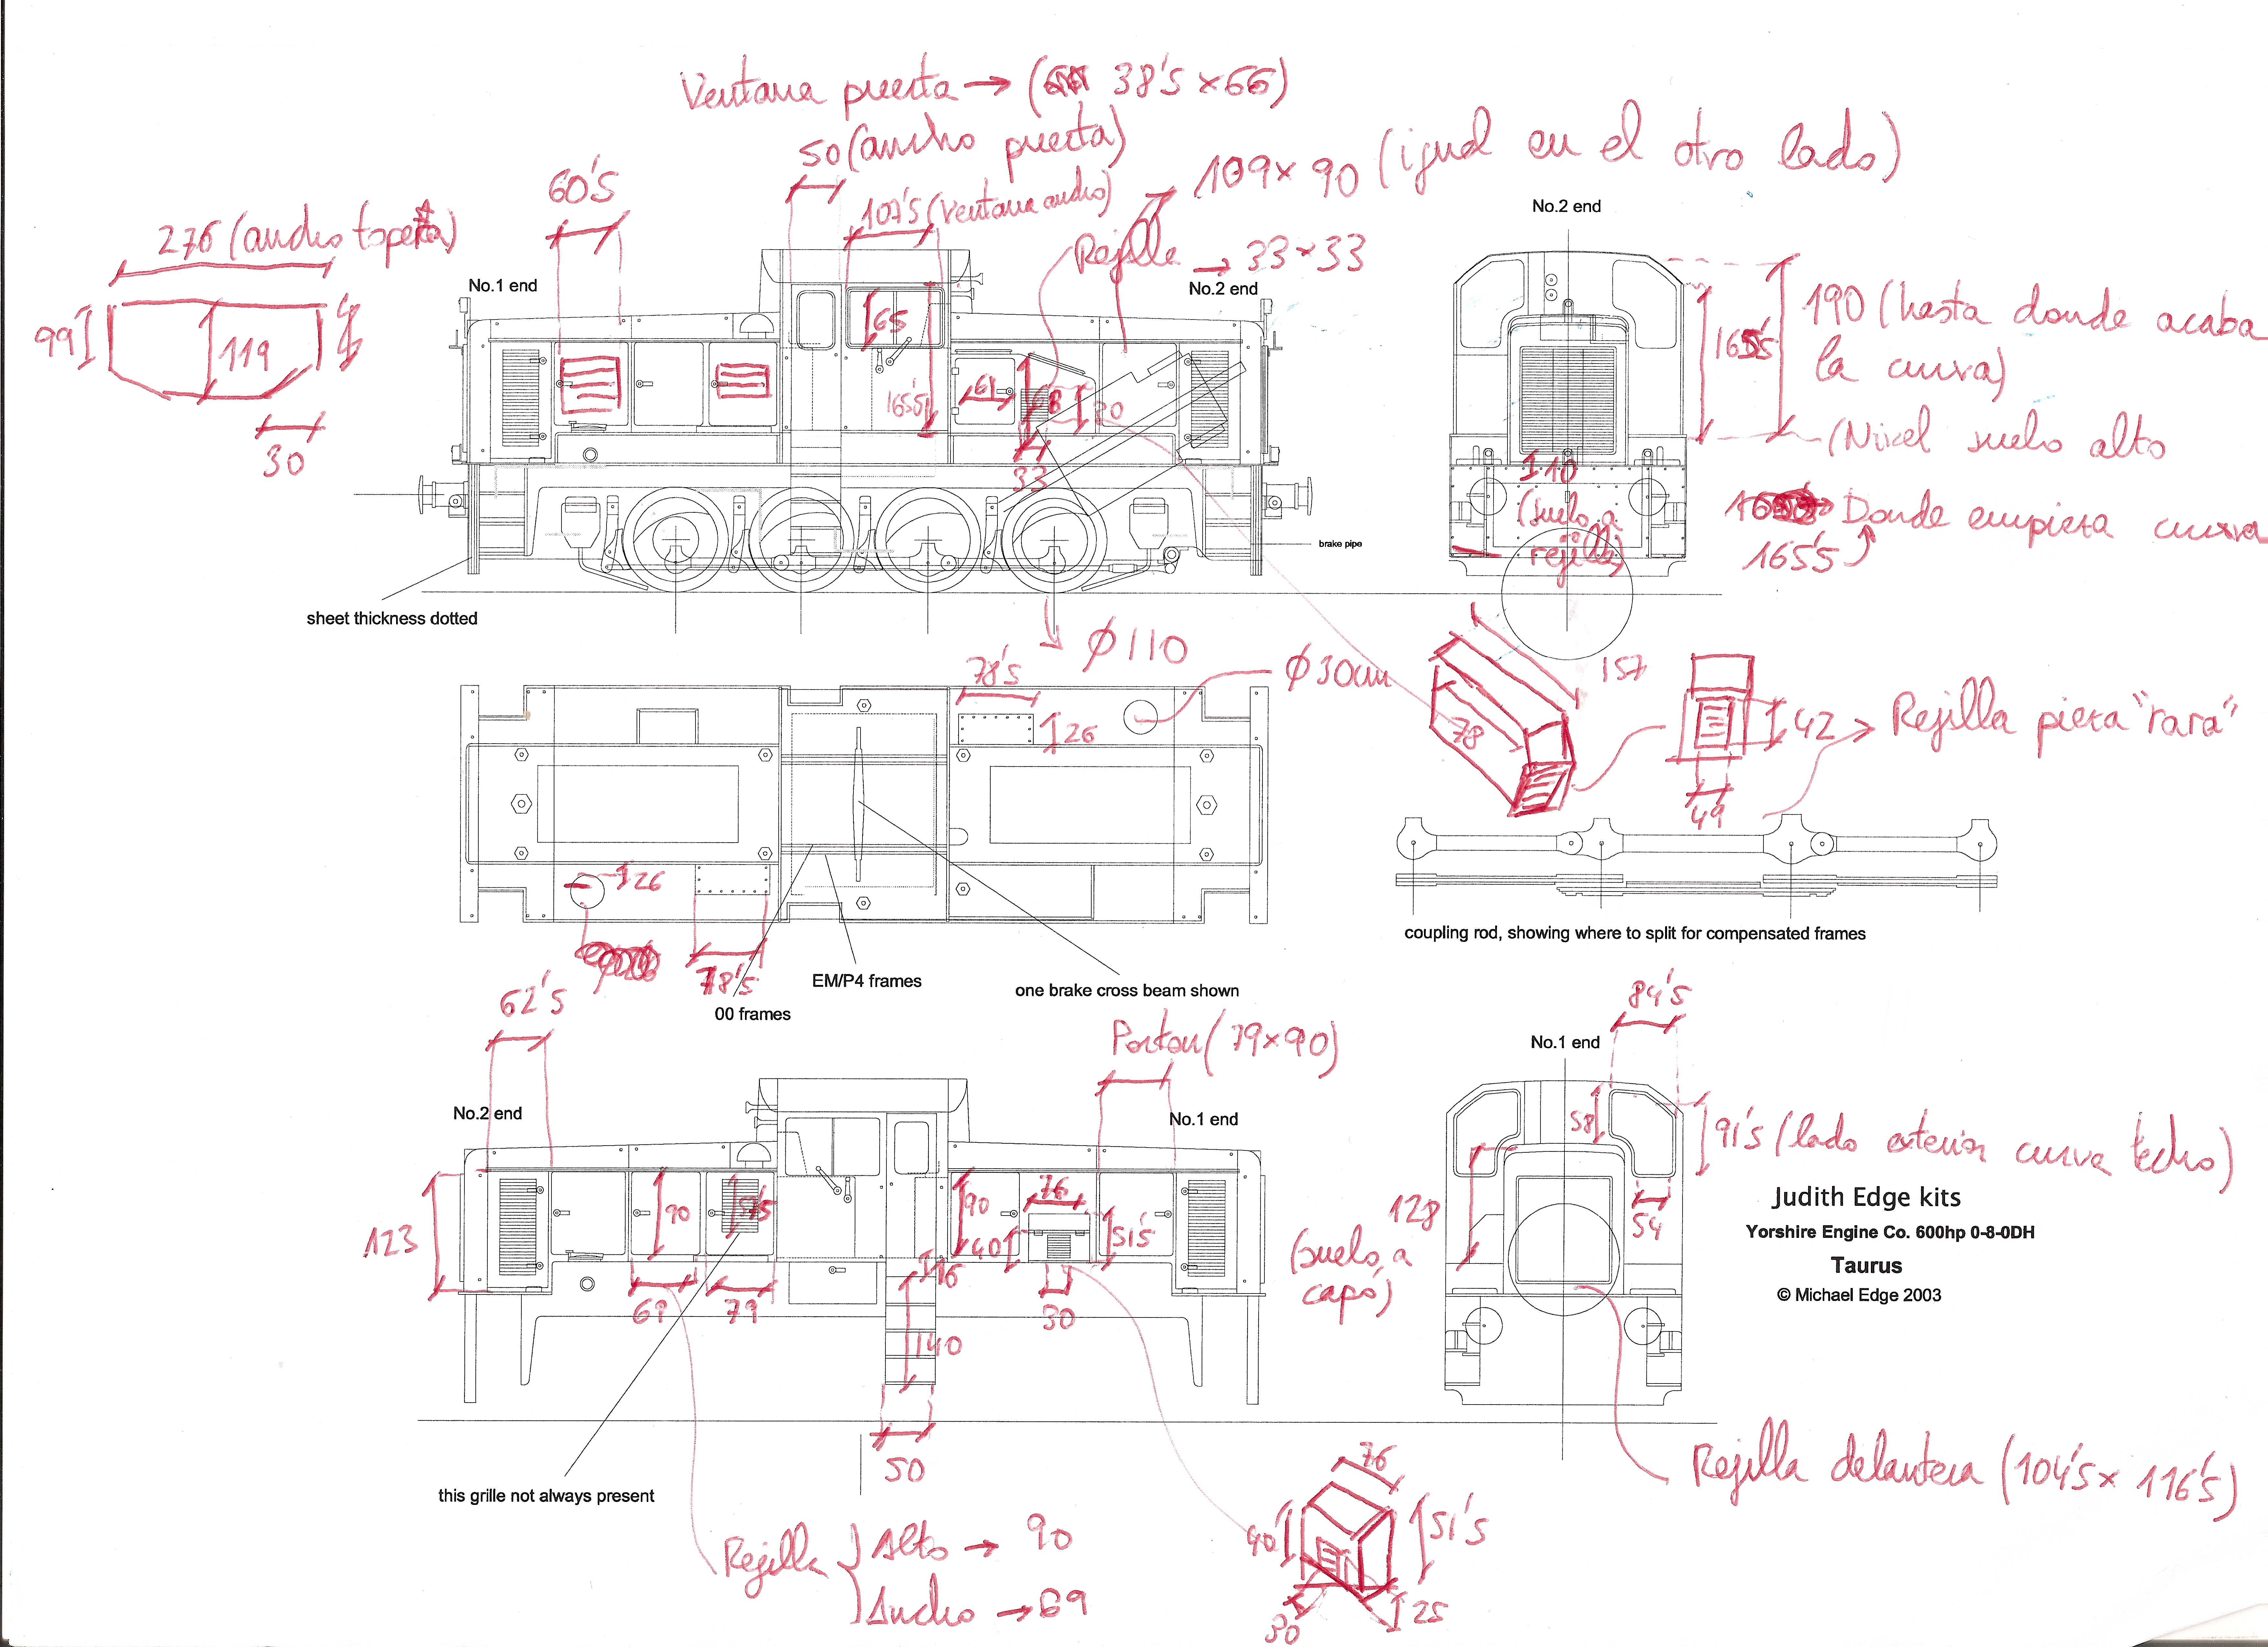 Ventana puerta → (38's × 66)
50 (ancho puerta)
109 × 90 (igual en el otro lado)
60's
107's (Ventana ancho)
Rejilla → 33 × 33
276 (ancho topera)
99
119
30
No.1 end
No.2 end
65
165's
61
68
20
33
brake pipe
sheet thickness dotted
Ø110
No.2 end
190 (hasta donde acaba
la curva)
165's
(Nivel suelo alto
Donde empieza curva
165's
10
(suelo a
rejilla)
157
78
42
49
Rejilla pieza "rara"
78's
26
Ø30cm
26
78's
EM/P4 frames
00 frames
one brake cross beam shown
coupling rod, showing where to split for compensated frames
62's
Porton (79×90)
No.2 end
No.1 end
123
90
57's
69
79
90
76
40
51's
30
16
140
50
this grille not always present
Rejilla
Alto → 90
Ancho → 69
76
40
51's
30
25
84's
No.1 end
58
91's (lado exterior curva techo)
128
(suelo a
capó)
54
Judith Edge kits
Yorshire Engine Co. 600hp 0-8-0DH
Taurus
© Michael Edge 2003
Rejilla delantera (104's × 116's)